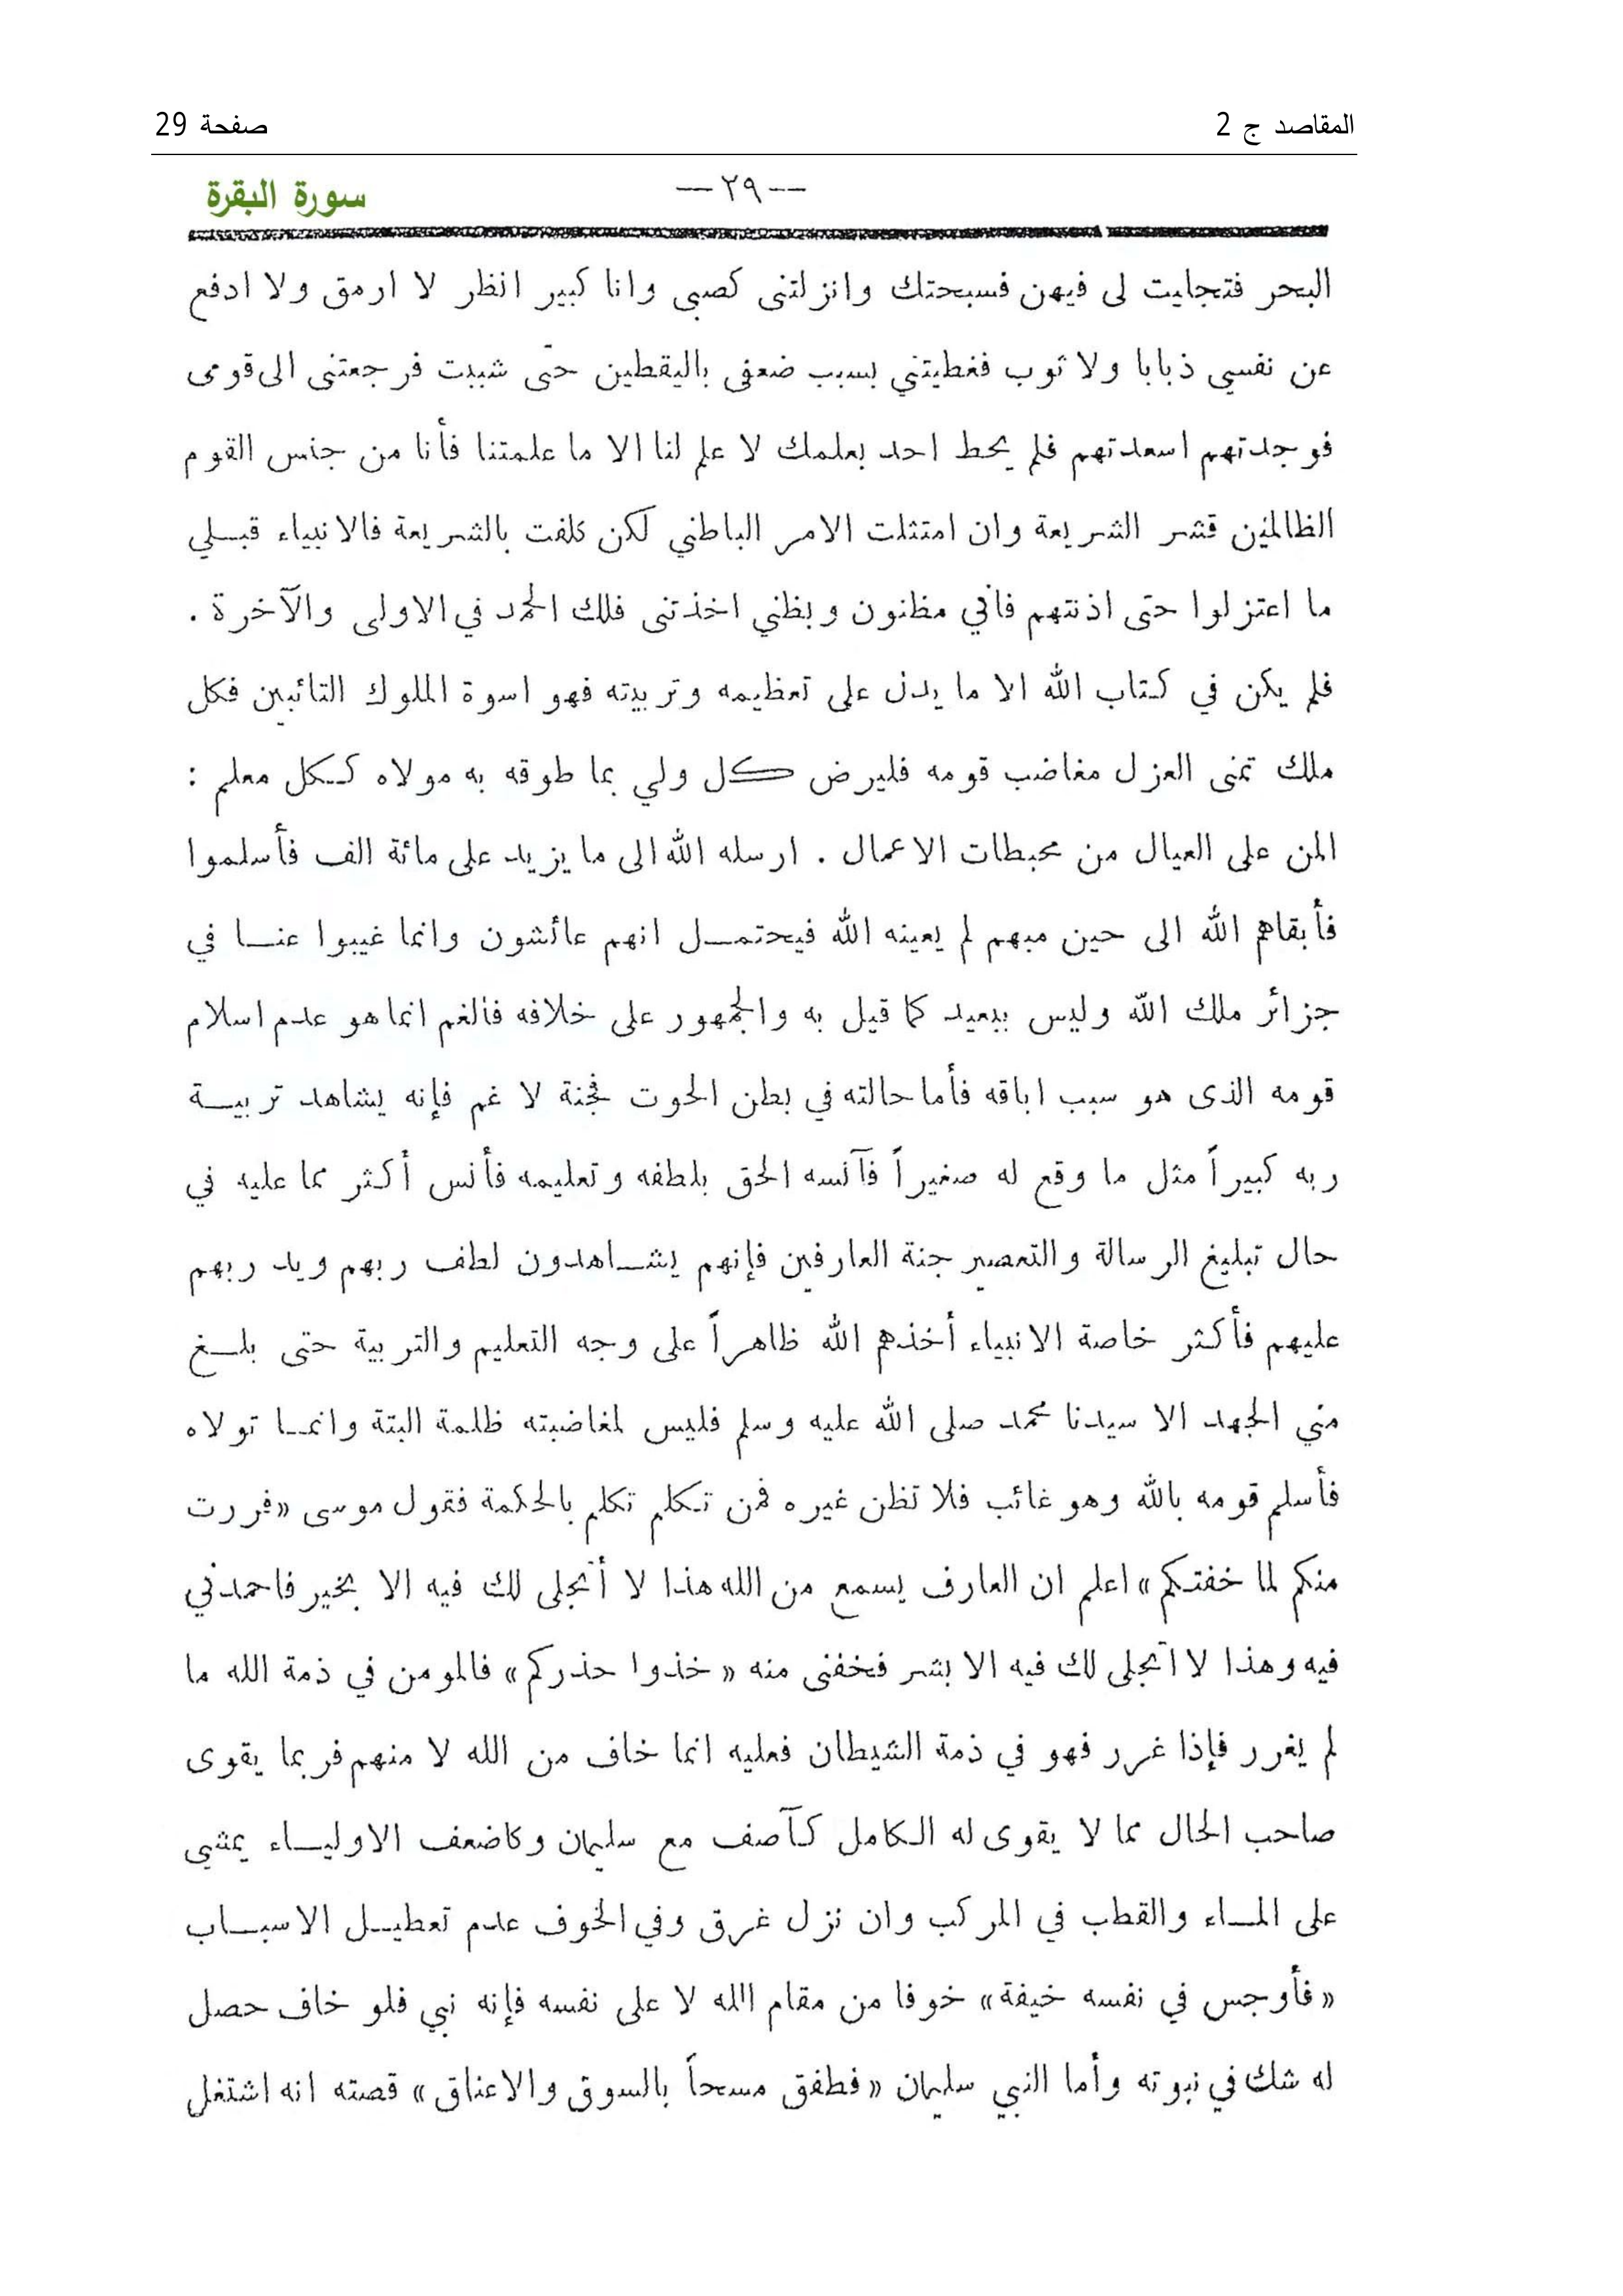 المقاصد ج 2 صفحة 29
--٢٩-- سورة البقرة
البحر فتجليت لى فيهن فسبحتك وانزلتنى كصبى وانا كبير انظر لا ارمق ولا ادفع
عن نفسي ذبابا ولا ثوب فغطيتني بسبب ضعفى باليقطين حتى شببت فرجعتنى الى قومى
فوجدتهم اسعدتهم فلم يحط احد بعلمك لا علم لنا الا ما علمتنا فأنا من جنس القوم
الظالمين قشر الشريعة وان امتثلت الامر الباطني لكن كلفت بالشريعة فالانبياء قبلي
ما اعتزلوا حتى اذنتهم فاني مظنون وبظني اخذتنى فلك الحمد في الاولى والآخرة .
فلم يكن في كتاب الله الا ما يدل على تعظيمه وتربيته فهو اسوة الملوك التائبين فكل
ملك تمنى العزل مغاضب قومه فليرض كل ولي بما طوقه به مولاه ككل معلم :
المن على العيال من محبطات الاعمال . ارسله الله الى ما يزيد على مائة الف فأسلموا
فأبقاهم الله الى حين مبهم لم يعينه الله فيحتمل انهم عائشون وانما غيبوا عنا في
جزائر ملك الله وليس ببعيد كما قيل به والجمهور على خلافه فالغم انما هو عدم اسلام
قومه الذى هو سبب اباقه فأما حالته في بطن الحوت فجنة لا غم فإنه يشاهد تربية
ربه كبيراً مثل ما وقع له صغيراً فآنسه الحق بلطفه وتعليمه فأنس أكثر مما عليه في
حال تبليغ الرسالة والتعصير جنة العارفين فإنهم يشاهدون لطف ربهم ويد ربهم
عليهم فأكثر خاصة الانبياء أخذهم الله ظاهراً على وجه التعليم والتربية حتى بلغ
مني الجهد الا سيدنا محمد صلى الله عليه وسلم فليس لمغاضبته ظلمة البتة وانما تولاه
فأسلم قومه بالله وهو غائب فلا تظن غيره فمن تكلم تكلم بالحكمة فقول موسى «فررت
منكم لما خفتكم» اعلم ان العارف يسمع من الله هذا لا أتجلى لك فيه الا بخير فاحمدني
فيه وهذا لا اتجلى لك فيه الا بشر فخفنى منه « خذوا حذركم» فالمومن في ذمة الله ما
لم يغرر فإذا غرر فهو في ذمة الشيطان فعليه انما خاف من الله لا منهم فربما يقوى
صاحب الحال مما لا يقوى له الكامل كآصف مع سليمان وكاضعف الاولياء يمشي
على الماء والقطب في المركب وان نزل غرق وفي الخوف عدم تعطيل الاسباب
«فأوجس في نفسه خيفة» خوفا من مقام الله لا على نفسه فإنه نبي فلو خاف حصل
له شك في نبوته وأما النبي سليمان «فطفق مسحاً بالسوق والاعناق» قصته انه اشتغل